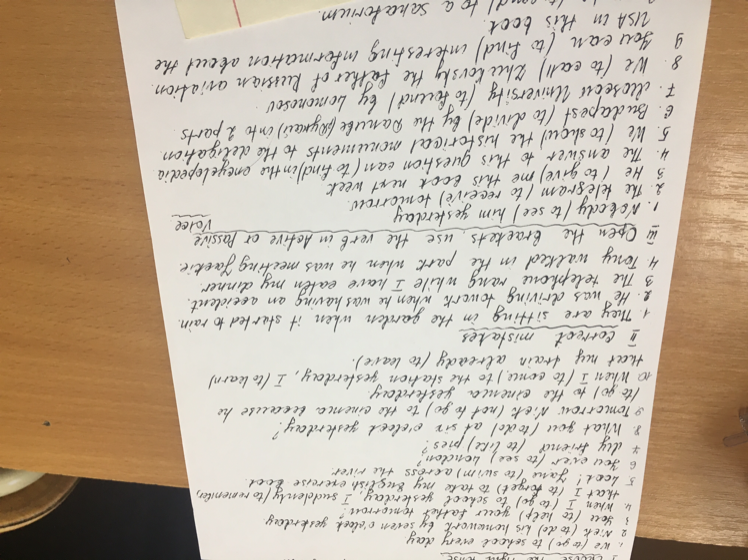 I Choose the right tense
1. We (to go) to school every day
2 Nick (to do) his homework by seven o'clock yesterday
3 You (to help) your father tomorrow?
4. When I (to go) to school yesterday, I suddenly (to remember)
that I (to forget) to take my English exercise book
5 Look! Jane (to swim) across the river
6 You ever (to see) London?
7 My friend (to like) pies?
8. What you (to do) at six o'clock yesterday?
9 Tomorrow Nick (not to go) to the cinema because he
(to go) to the cinema yesterday.
10 When I (to come) to the station yesterday, I (to learn)
that my train already (to leave).
II Correct mistakes
1. They are sitting in the garden when it started to rain
2. He was driving to work when he was having an accident.
3 The telephone rang while I have eaten my dinner
4 Tony walked in the park when he was meeting Jackie.
III Open the brackets, use the verb in Active or Passive
Voice
1. Nobody (to see) him yesterday
2. The telegram (to receive) tomorrow
3 He (to give) me this book next week
4. The answer to this question can (to find) in the encyclopedia
5. We (to show) the historical monuments to the deligation
6. Budapest (to divide) by the Danube (Дунай) into 2 parts
7. Moscow University (to found) by Lomonosov
8. We (to call) Zhukovsky the father of Russian aviation.
9 You can (to find) interesting information about the
USA in this book
(to send) to a sanatorium.